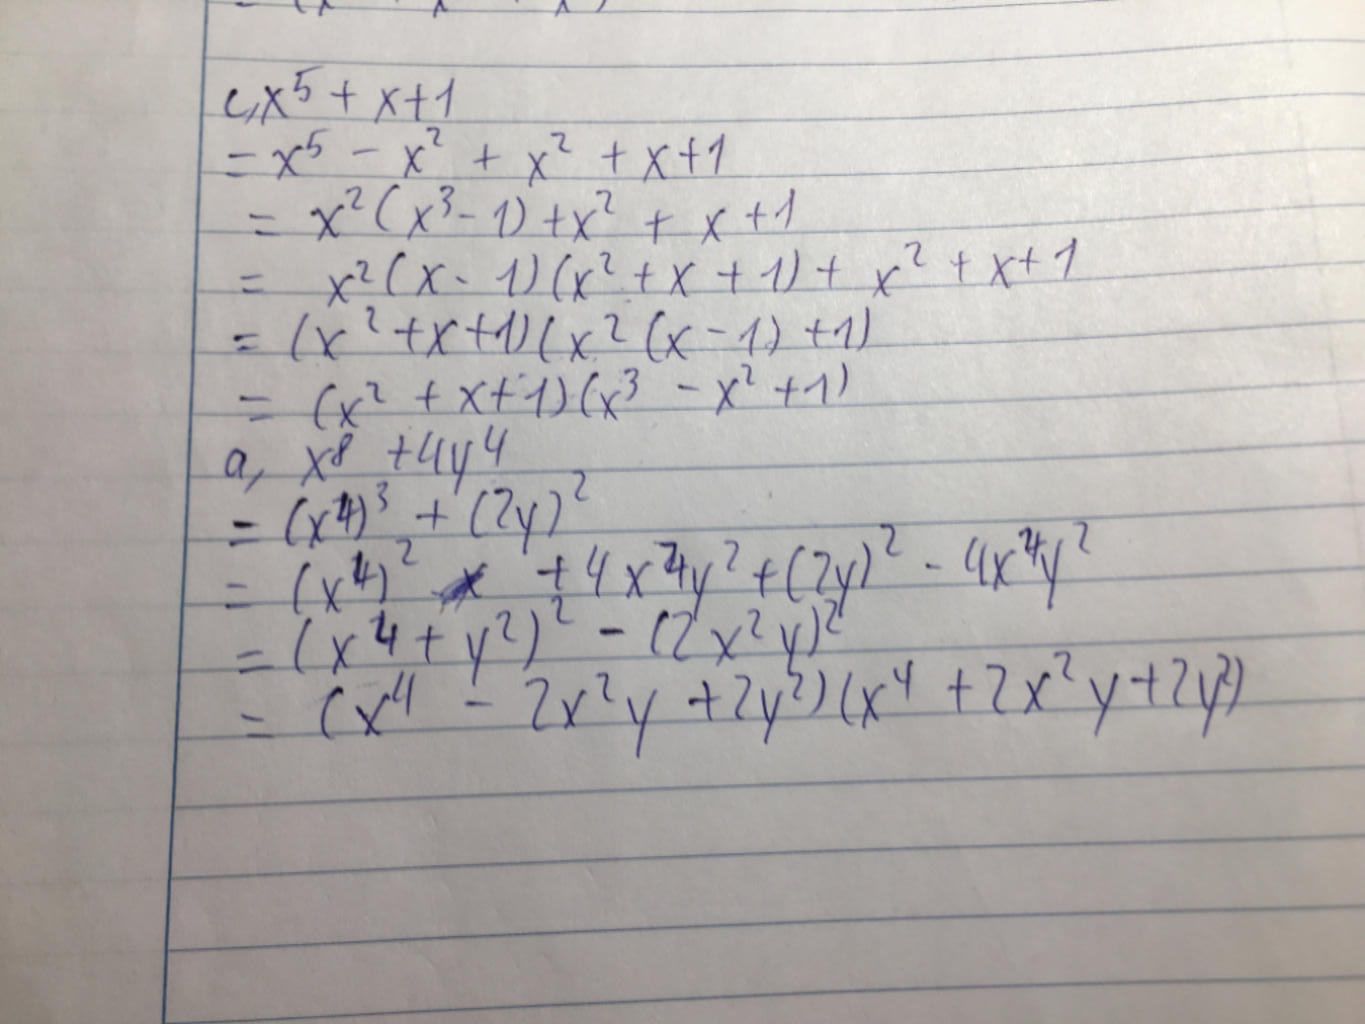 c, x⁵ + x + 1
= x⁵ - x² + x² + x + 1
= x²(x³ - 1) + x² + x + 1
= x²(x - 1)(x² + x + 1) + x² + x + 1
= (x² + x + 1)(x²(x - 1) + 1)
= (x² + x + 1)(x³ - x² + 1)
a, x⁸ + 4y⁴
= (x⁴)³ + (2y)²
= (x⁴)² + 4x⁴y² + (2y)² - 4x⁴y²
= (x⁴ + y²)² - (2x²y)²
= (x⁴ - 2x²y + 2y²)(x⁴ + 2x²y + 2y²)